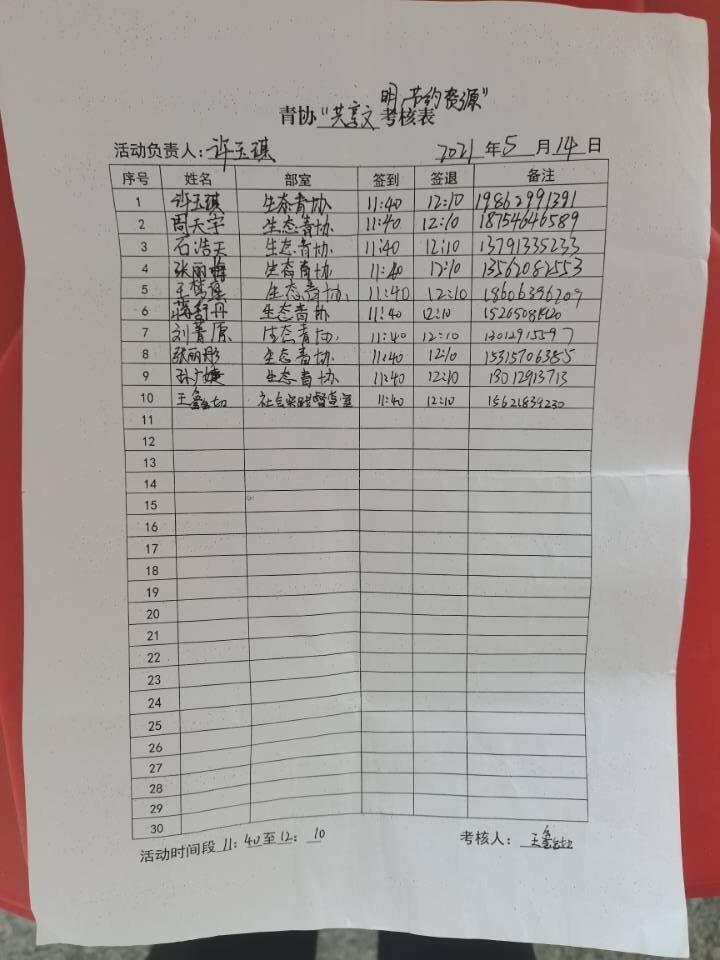 青协“共享文明 节约资源”考核表
活动负责人：许玉琪 2021年5月14日
序号 姓名 部室 签到 签退 备注
1 许玉琪 生态青协 11:40 12:10 19862991391
2 周天宇 生态青协 11:40 12:10 18754646589
3 石浩天 生态青协 11:40 12:10 13791335233
4 张丽 生态青协 11:40 12:10 13562082553
5 王 生态青协 11:40 12:10 18606396209
6 蒋舒丹 生态青协 11:40 12:10
7 刘菁源 生态青协 11:40 12:10 13012915597
8 张丽彤 生态青协 11:40 12:10 15315706385
9 孙广婕 生态青协 11:40 12:10 13012913713
10 王鑫 社会实践督查室 11:40 12:10 15621839230
11
12
13
14
15
16
17
18
19
20
21
22
23
24
25
26
27
28
29
30
活动时间段 11：40至12：10 考核人：王鑫